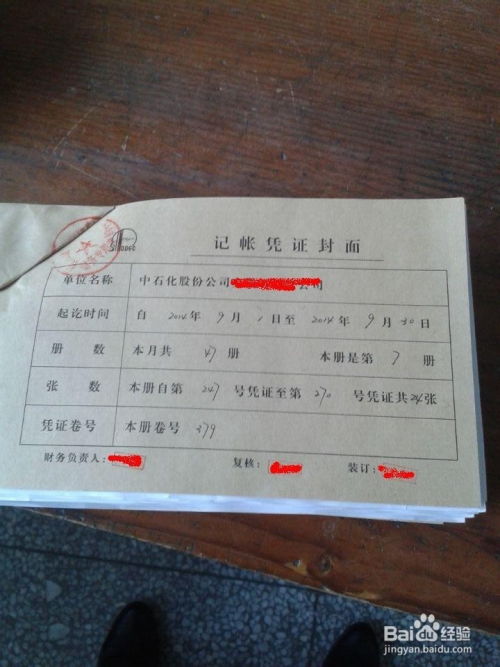 SINOPEC
记帐凭证封面
单位名称 中石化股份公司 公司
起讫时间 自 2014 年 9 月 1 日至 2014 年 9 月 30 日
册 数 本月共 47 册 本册是第 7 册
张 数 本册自第 247 号凭证至第 270 号凭证共 24 张
凭证卷号 本册卷号 379
财务负责人: 复核: 装订:
Baidu 经验
jingyan.baidu.com